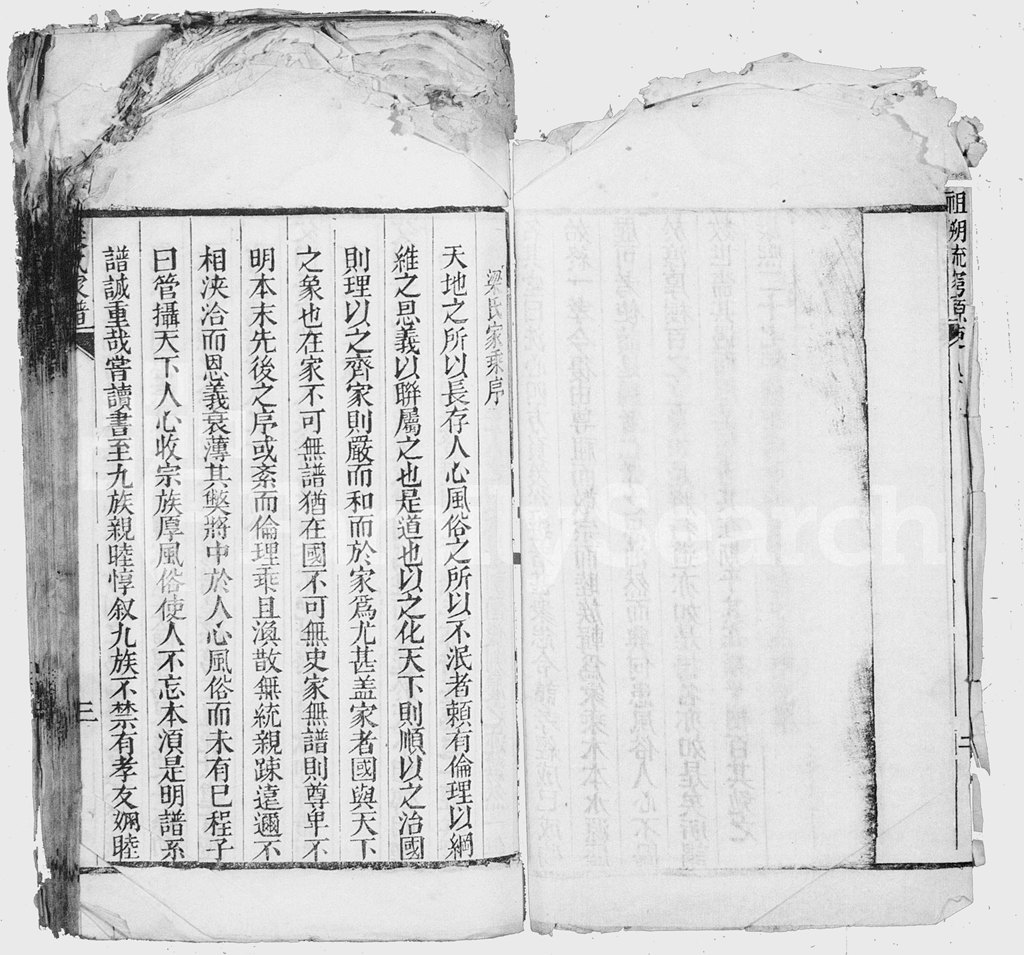 祖朔流窮源
梁氏家乘序
天地之所以長存人心風俗之所以不泯者賴有倫理以綱
維之恩義以聯屬之也是道也以之化天下則順以之治國
則理以之齊家則嚴而和而於家爲尤甚盖家者國與天下
之象也在家不可無譜猶在國不可無史家無譜則尊卑不
明本末先後之序或紊而倫理乖且渙散無統親踈遠邇不
相浹洽而恩義衰薄其獘將中於人心風俗而未有已程子
曰管攝天下人心收宗族厚風俗使人不忘本湏是明譜系
譜誠重哉嘗讀書至九族親睦惇叙九族不禁有孝友婣睦
氏家譜
三